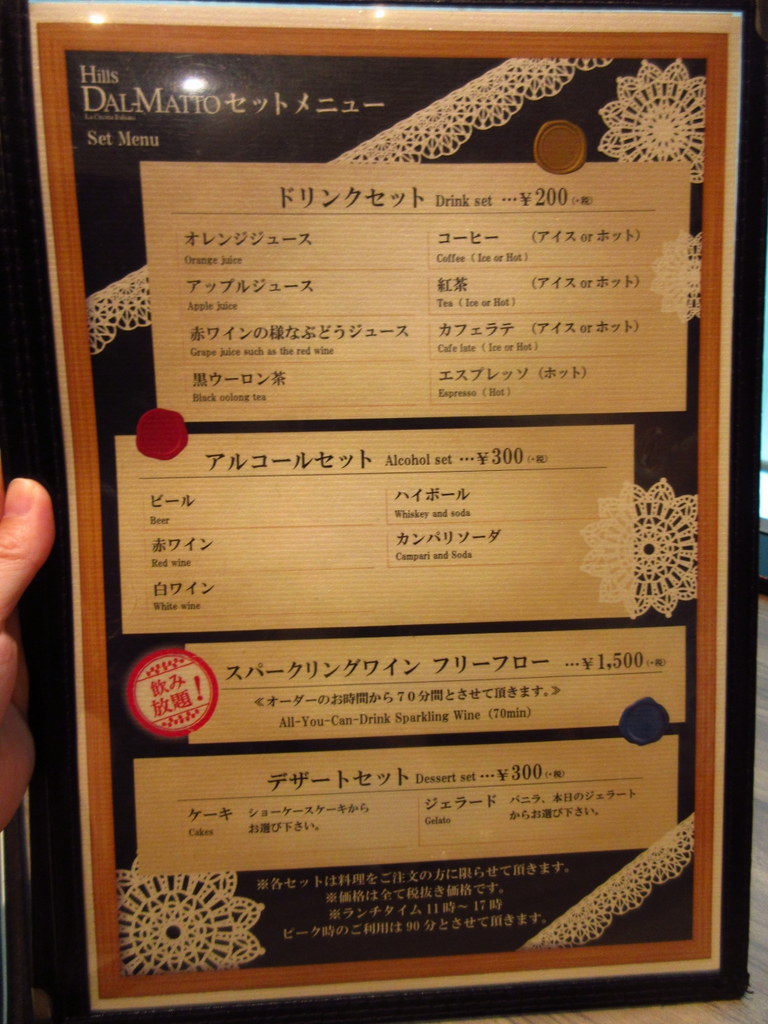 Hills
DAL-MATTO セットメニュー
La Cucina Italiana
Set Menu
ドリンクセット Drink set …¥200(+税)
オレンジジュース
Orange juice
アップルジュース
Apple juice
赤ワインの様なぶどうジュース
Grape juice such as the red wine
黒ウーロン茶
Black oolong tea
コーヒー (アイス or ホット)
Coffee ( Ice or Hot )
紅茶 (アイス or ホット)
Tea ( Ice or Hot )
カフェラテ (アイス or ホット)
Cafe late ( Ice or Hot )
エスプレッソ (ホット)
Espresso ( Hot )
アルコールセット Alcohol set …¥300(+税)
ビール
Beer
赤ワイン
Red wine
白ワイン
White wine
ハイボール
Whiskey and soda
カンパリソーダ
Campari and Soda
飲み
放題!
スパークリングワイン フリーフロー …¥1,500(+税)
≪オーダーのお時間から70分間とさせて頂きます。≫
All-You-Can-Drink Sparkling Wine (70min)
デザートセット Dessert set …¥300(+税)
ケーキ ショーケースケーキから
Cakes お選び下さい。
ジェラード バニラ、本日のジェラート
Gelato からお選び下さい。
※各セットは料理をご注文の方に限らせて頂きます。
※価格は全て税抜き価格です。
※ランチタイム11時〜17時
ピーク時のご利用は90分とさせて頂きます。